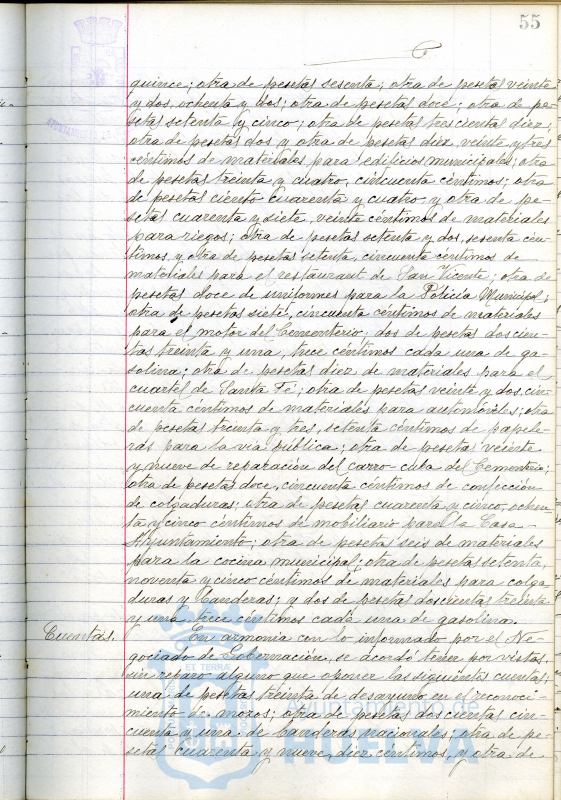 55
quince; otra de pesetas sesenta; otra de pesetas veinte
y dos, ochenta y dos; otra de pesetas doce; otra de pe-
setas setenta y cinco; otra de pesetas trescientas diez;
otra de pesetas dos y otra de pesetas diez, veinte y tres
céntimos de materiales para edificios municipales; otra
de pesetas treinta y cuatro, cincuenta céntimos; otra
de pesetas ciento cuarenta y cuatro y otra de pe-
setas cuarenta y siete, veinte céntimos de materiales
para riegos; otra de pesetas setenta y dos, sesenta cén-
timos, y otra de pesetas setenta, cincuenta céntimos de
materiales para el restaurant de San Vicente; otra de
pesetas doce de uniformes para la Policía Municipal;
otra de pesetas siete, cincuenta céntimos de materiales
para el motor del Cementerio; dos de pesetas doscien-
tas treinta y una, trece céntimos cada una de ga-
solina; otra de pesetas diez de materiales para el
cuartel de Santa Fé; otra de pesetas veinte y dos, cin-
cuenta céntimos de materiales para automóviles; otra
de pesetas treinta y tres, setenta céntimos de papele-
ras para la via pública; otra de pesetas veinte
y nueve de reparación del carro-cuba del Cementerio;
otra de pesetas doce, cincuenta céntimos de confección
de colgaduras; otra de pesetas cuarenta y cinco, ochen-
ta y cinco céntimos de mobiliario para la Casa-
Ayuntamiento; otra de pesetas seis de materiales
para la cocina municipal; otra de pesetas setenta,
noventa y cinco céntimos de materiales para colga-
duras y banderas; y dos de pesetas doscientas treinta
y una, trece céntimos cada una de gasolina.
Cuentas. En armonía con lo informado por el Ne-
gociado de Gobernación, se acordó tener por vistas,
sin reparo alguno que oponer las siguientes cuentas;
una de pesetas treinta de desayuno en el reconoci-
miento de mozos; otra de pesetas doscientas cin-
cuenta y una de banderas nacionales; otra de pe-
setas cuarenta y nueve, diez céntimos, y otra de
ET TERRÆ
Ayuntamiento de
HUELVA